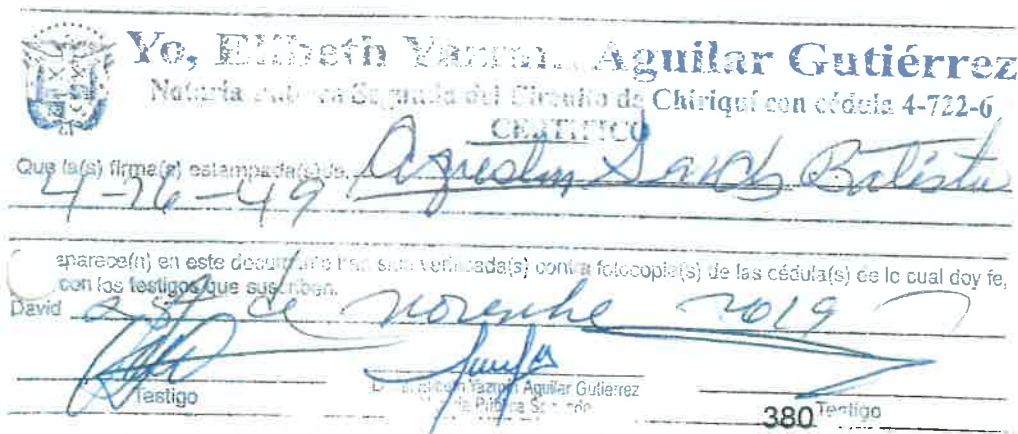 Yo, Elibeth Yazmin Aguilar Gutiérrez
Notaria Pública Segunda del Circuito de Chiriquí con cédula 4-722-6
CERTIFICO
Que la(s) firma(s) estampada(s) de, Agustin Batista
4-76-49
aparece(n) en este documento han sido verificada(s) contra fotocopia(s) de las cédula(s) de lo cual doy fe,
con los testigos que suscriben.
David de noviembre 2019
Testigo
Elibeth Yazmin Aguilar Gutierrez
Notaria Pública Segunda
380 Testigo